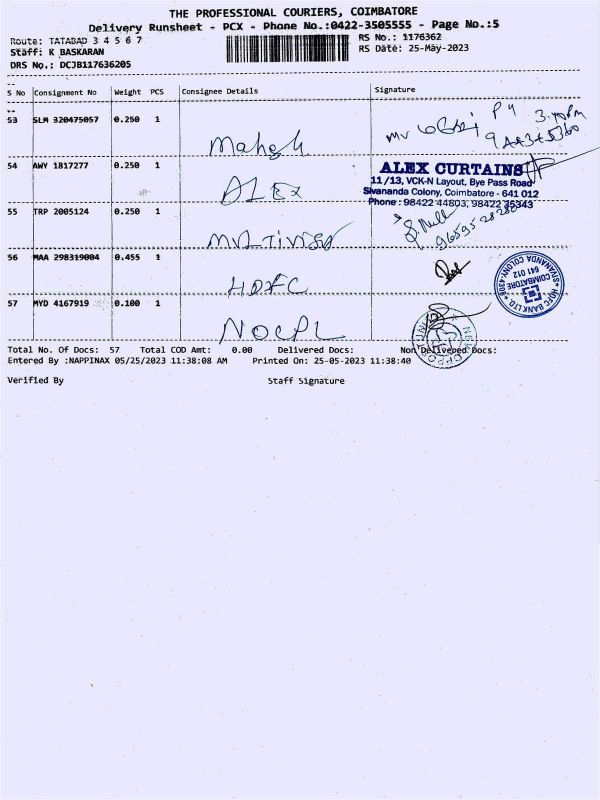 THE PROFESSIONAL COURIERS, COIMBATORE
Delivery Runsheet - PCX - Phone No.:0422-3505555 - Page No.:5
Route: TATABAD 3 4 5 6 7
RS No.: 1176362
Staff: K BASKARAN
RS Date: 25-May-2023
DRS No.: DCJB117636205
S No Consignment No Weight PCS Consignee Details Signature
53 SLM 320475057 0.250 1
Mahesh
54 AWY 1817277 0.250 1
ALEX
ALEX CURTAINS
11/13, VCK-N Layout, Bye Pass Road
Sivananda Colony, Coimbatore - 641 012
Phone : 98422 44803, 98422 35343
55 TRP 2005124 0.250 1
56 MAA 298319004 0.455 1
HDFC
HDFC BANK LTD * SIVANANDA COLONY-4309 *
COIMBATORE
641 012
57 MYD 4167919 0.100 1
NOCPL
Total No. Of Docs: 57 Total COD Amt: 0.00 Delivered Docs: Non Delivered Docs:
Entered By :NAPPINAX 05/25/2023 11:38:08 AM Printed On: 25-05-2023 11:38:40
Verified By Staff Signature